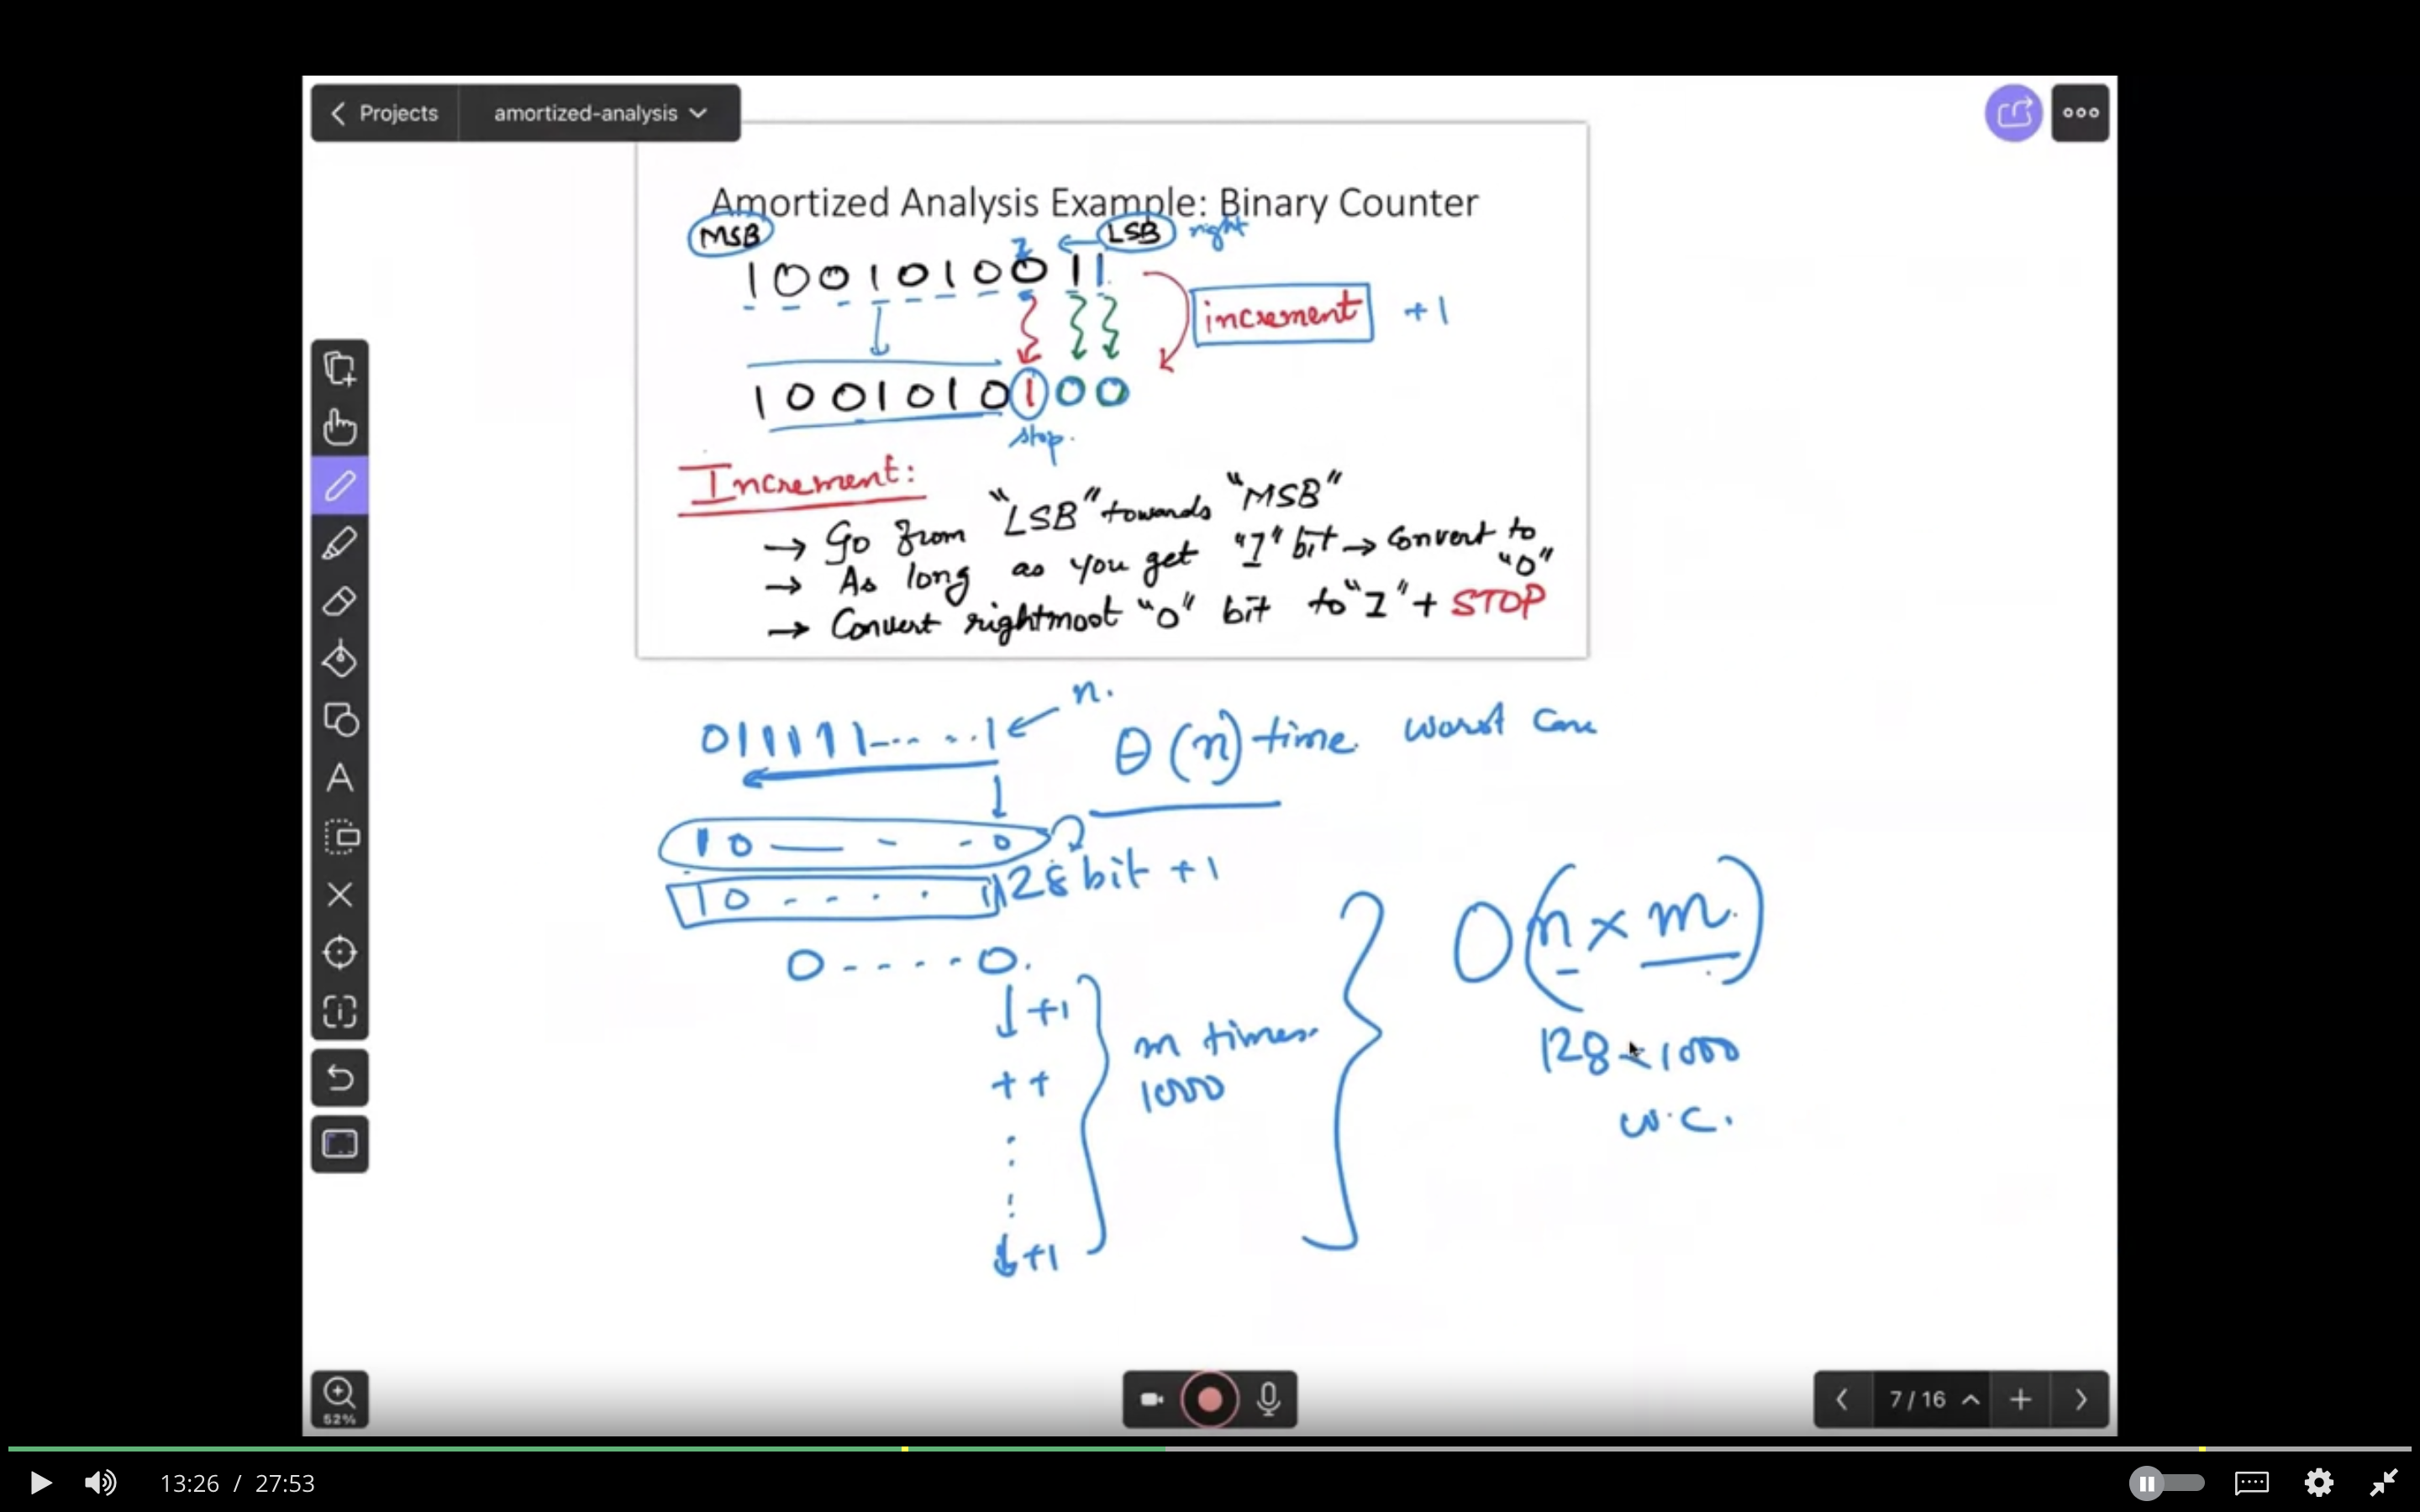 Projects amortized-analysis
Amortized Analysis Example: Binary Counter
MSB LSB right
1001010011
increment +1
1001010100
stop.
Increment:
→ Go from "LSB" towards "MSB"
→ As long as you get "1" bit → Convert to "0"
→ Convert rightmost "0" bit to "1" + STOP
n.
011111---- - . . 1 θ(n) time. worst case
10 — - - 0
128 bit +1
10 - - . . . 1
0 - - - - 0.
+1
m times.
++
1000
+1
O(n × m)
128 × 1000
w.c.
52%
7 / 16
13:26 / 27:53